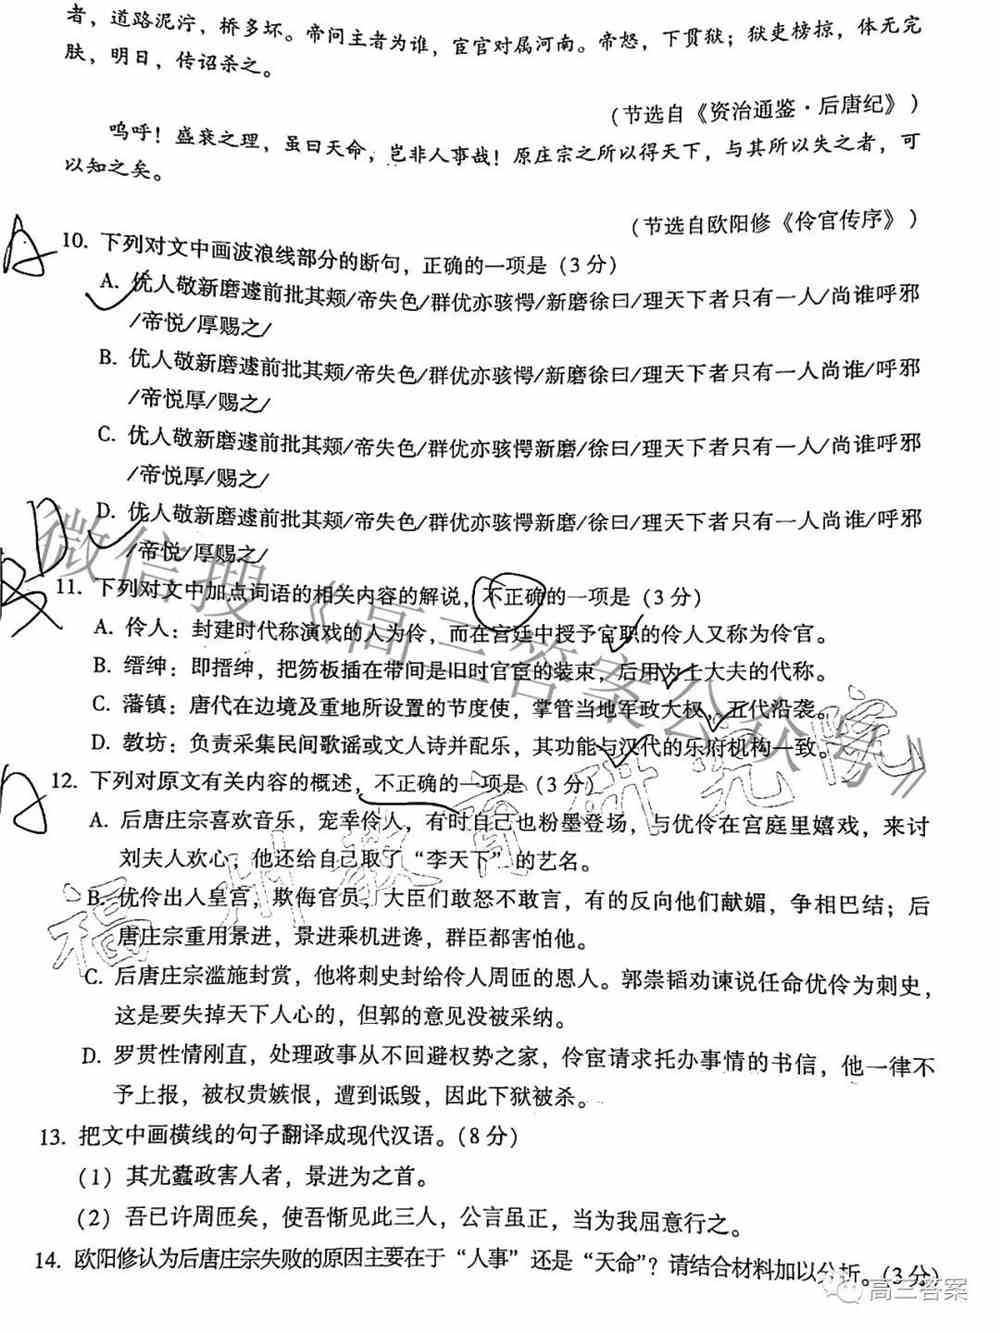 者，道路泥泞，桥多坏。帝问主者为谁，宦官对属河南。帝怒，下贯狱；狱吏榜掠，体无完
肤，明日，传诏杀之。
（节选自《资治通鉴·后唐纪》）
呜呼！盛衰之理，虽曰天命，岂非人事哉！原庄宗之所以得天下，与其所以失之者，可
以知之矣。
（节选自欧阳修《伶官传序》）
A
10. 下列对文中画波浪线部分的断句，正确的一项是（3 分）
A. 优人敬新磨遽前批其颊/帝失色/群优亦骇愕/新磨徐曰/理天下者只有一人/尚谁呼邪
/帝悦/厚赐之/
B. 优人敬新磨遽前批其颊/帝失色/群优亦骇愕/新磨徐曰/理天下者只有一人尚谁/呼邪
/帝悦厚/赐之/
C. 优人敬新磨遽前批其颊/帝失色/群优亦骇愕新磨/徐曰/理天下者只有一人/尚谁呼邪
/帝悦厚/赐之/
D. 优人敬新磨遽前批其颊/帝失色/群优亦骇愕新磨/徐曰/理天下者只有一人尚谁/呼邪
/帝悦/厚赐之/
D
11. 下列对文中加点词语的相关内容的解说，不正确的一项是（3 分）
A. 伶人：封建时代称演戏的人为伶，而在宫廷中授予官职的伶人又称为伶官。
B. 缙绅：即搢绅，把笏板插在带间是旧时官宦的装束，后用为士大夫的代称。
C. 藩镇：唐代在边境及重地所设置的节度使，掌管当地军政大权，五代沿袭。
D. 教坊：负责采集民间歌谣或文人诗并配乐，其功能与汉代的乐府机构一致。
微信搜《高三答案公众号》
D
12. 下列对原文有关内容的概述，不正确的一项是（3 分）
A. 后唐庄宗喜欢音乐，宠幸伶人，有时自己也粉墨登场，与优伶在宫庭里嬉戏，来讨
刘夫人欢心；他还给自己取了“李天下”的艺名。
B. 优伶出入皇宫，欺侮官员，大臣们敢怒不敢言，有的反向他们献媚，争相巴结；后
唐庄宗重用景进，景进乘机进谗，群臣都害怕他。
福州教育研究院
C. 后唐庄宗滥施封赏，他将刺史封给伶人周匝的恩人。郭崇韬劝谏说任命优伶为刺史，
这是要失掉天下人心的，但郭的意见没被采纳。
D. 罗贯性情刚直，处理政事从不回避权势之家，伶宦请求托办事情的书信，他一律不
予上报，被权贵嫉恨，遭到诋毁，因此下狱被杀。
13. 把文中画横线的句子翻译成现代汉语。（8 分）
（1）其尤蠹政害人者，景进为之首。
（2）吾已许周匝矣，使吾惭见此三人，公言虽正，当为我屈意行之。
14. 欧阳修认为后唐庄宗失败的原因主要在于“人事”还是“天命”？请结合材料加以分析。（3 分）
高三答案